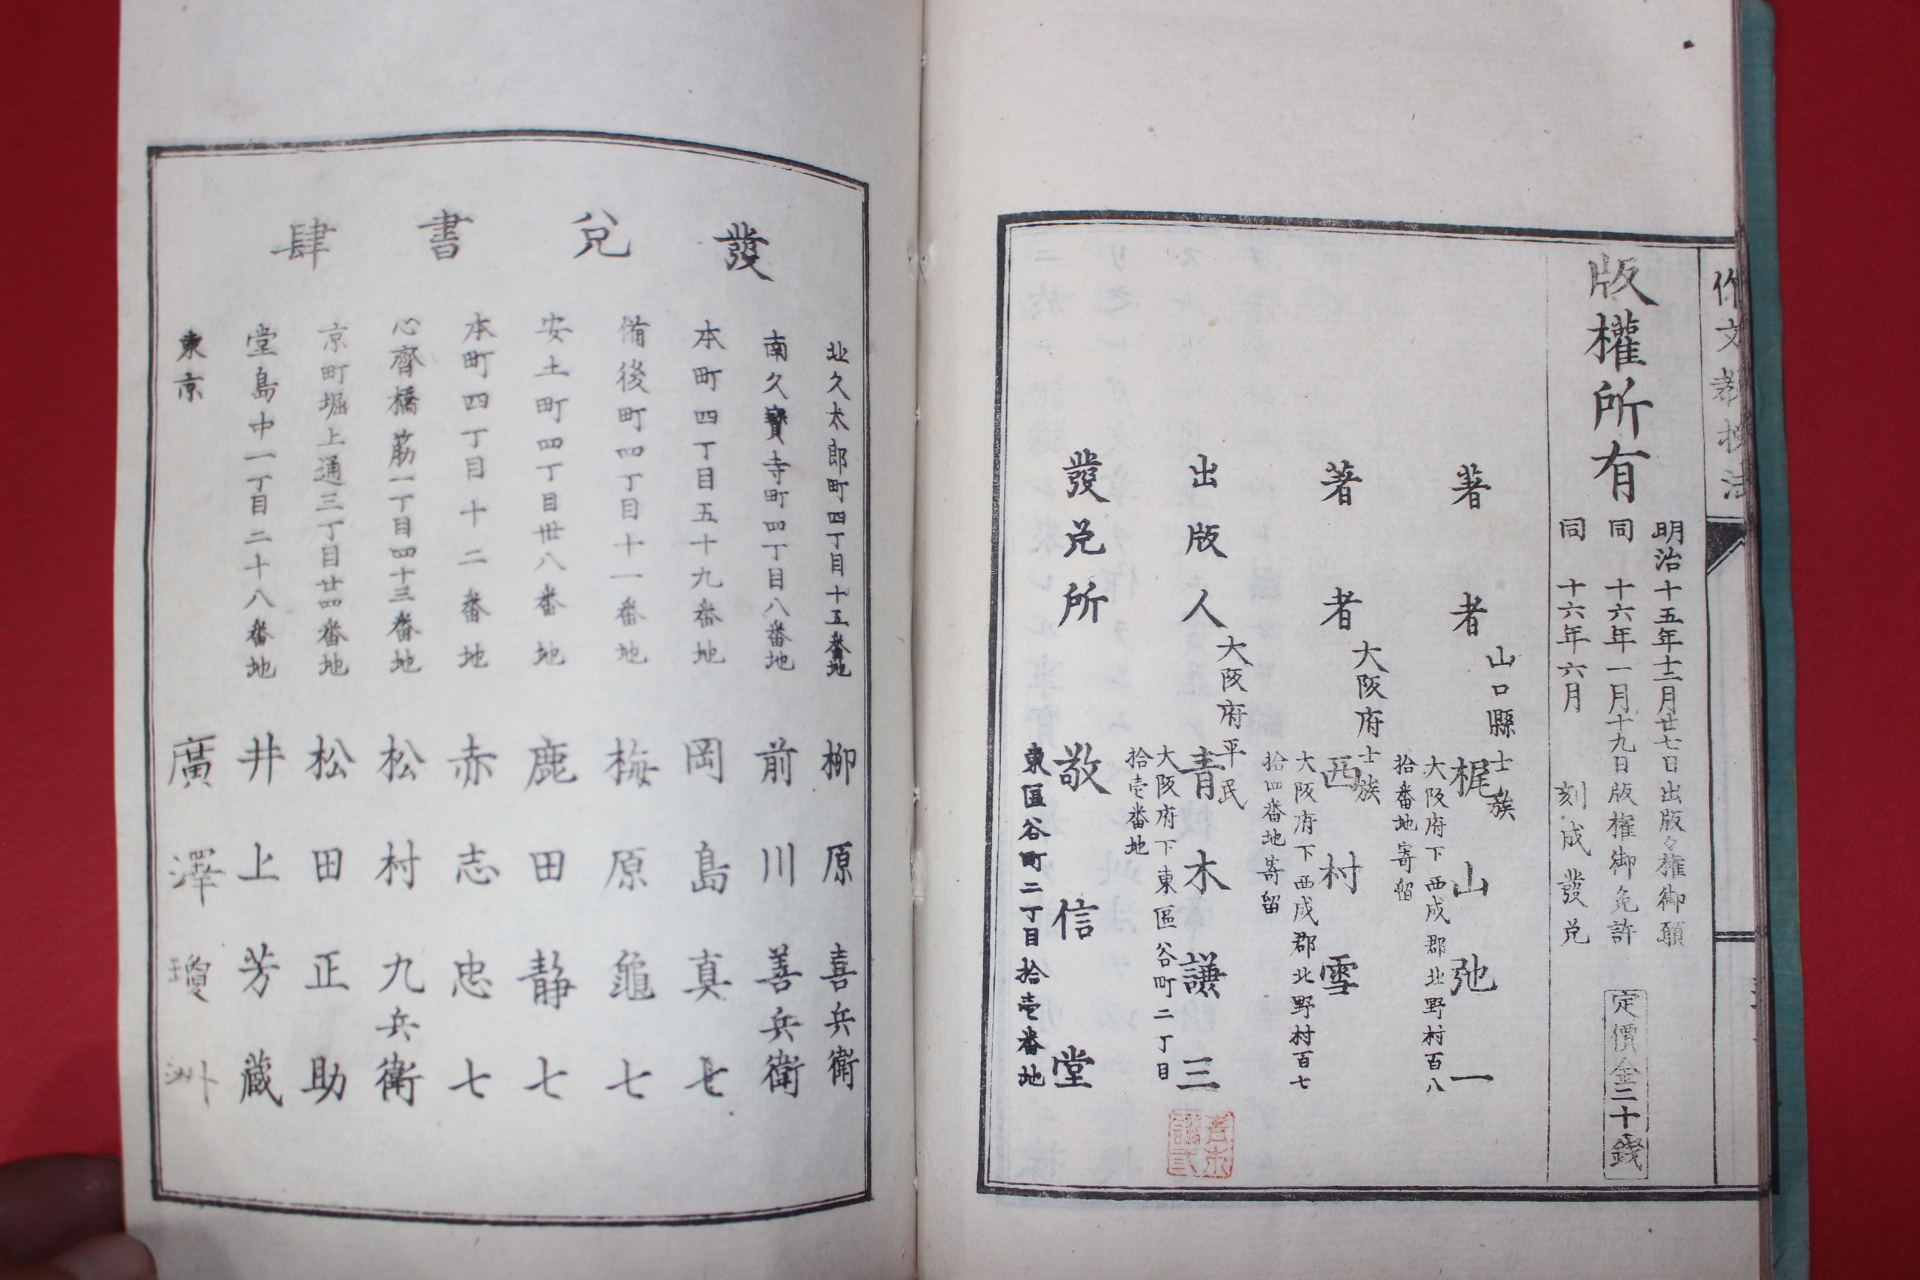 作文教授法
版權所有
明治十五年十二月廿七日出版々權御願
同 十六年一月十九日版權御免許
同 十六年六月 刻成發兌
定價金二十錢
著者
山口縣士族
梶山弛一
大阪府下西成郡北野村百八
拾番地寄留
著者
大阪府士族
西村雪
大阪府下西成郡北野村百七
拾四番地寄留
出版人
大阪府平民
青木謙三
大阪府下東區谷町二丁目
拾壱番地
發兌所
敬信堂
東區谷町二丁目拾壱番地
發兌書肆
北久太郎町四丁目十五番地 柳原喜兵衛
南久寶寺町四丁目八番地 前川善兵衛
本町四丁目五十九番地 岡島真七
備後町四丁目十一番地 梅原龜七
安土町四丁目卅八番地 鹿田静七
本町四丁目十二番地 赤志忠七
心齊橋筋一丁目四十三番地 松村九兵衛
京町堀上通三丁目廿四番地 松田正助
堂島中一丁目二十八番地 井上芳蔵
東京 廣澤瓊州